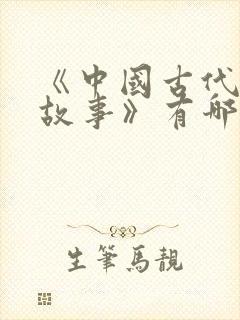 《中國古代
故事》有哪
生筆馬靚